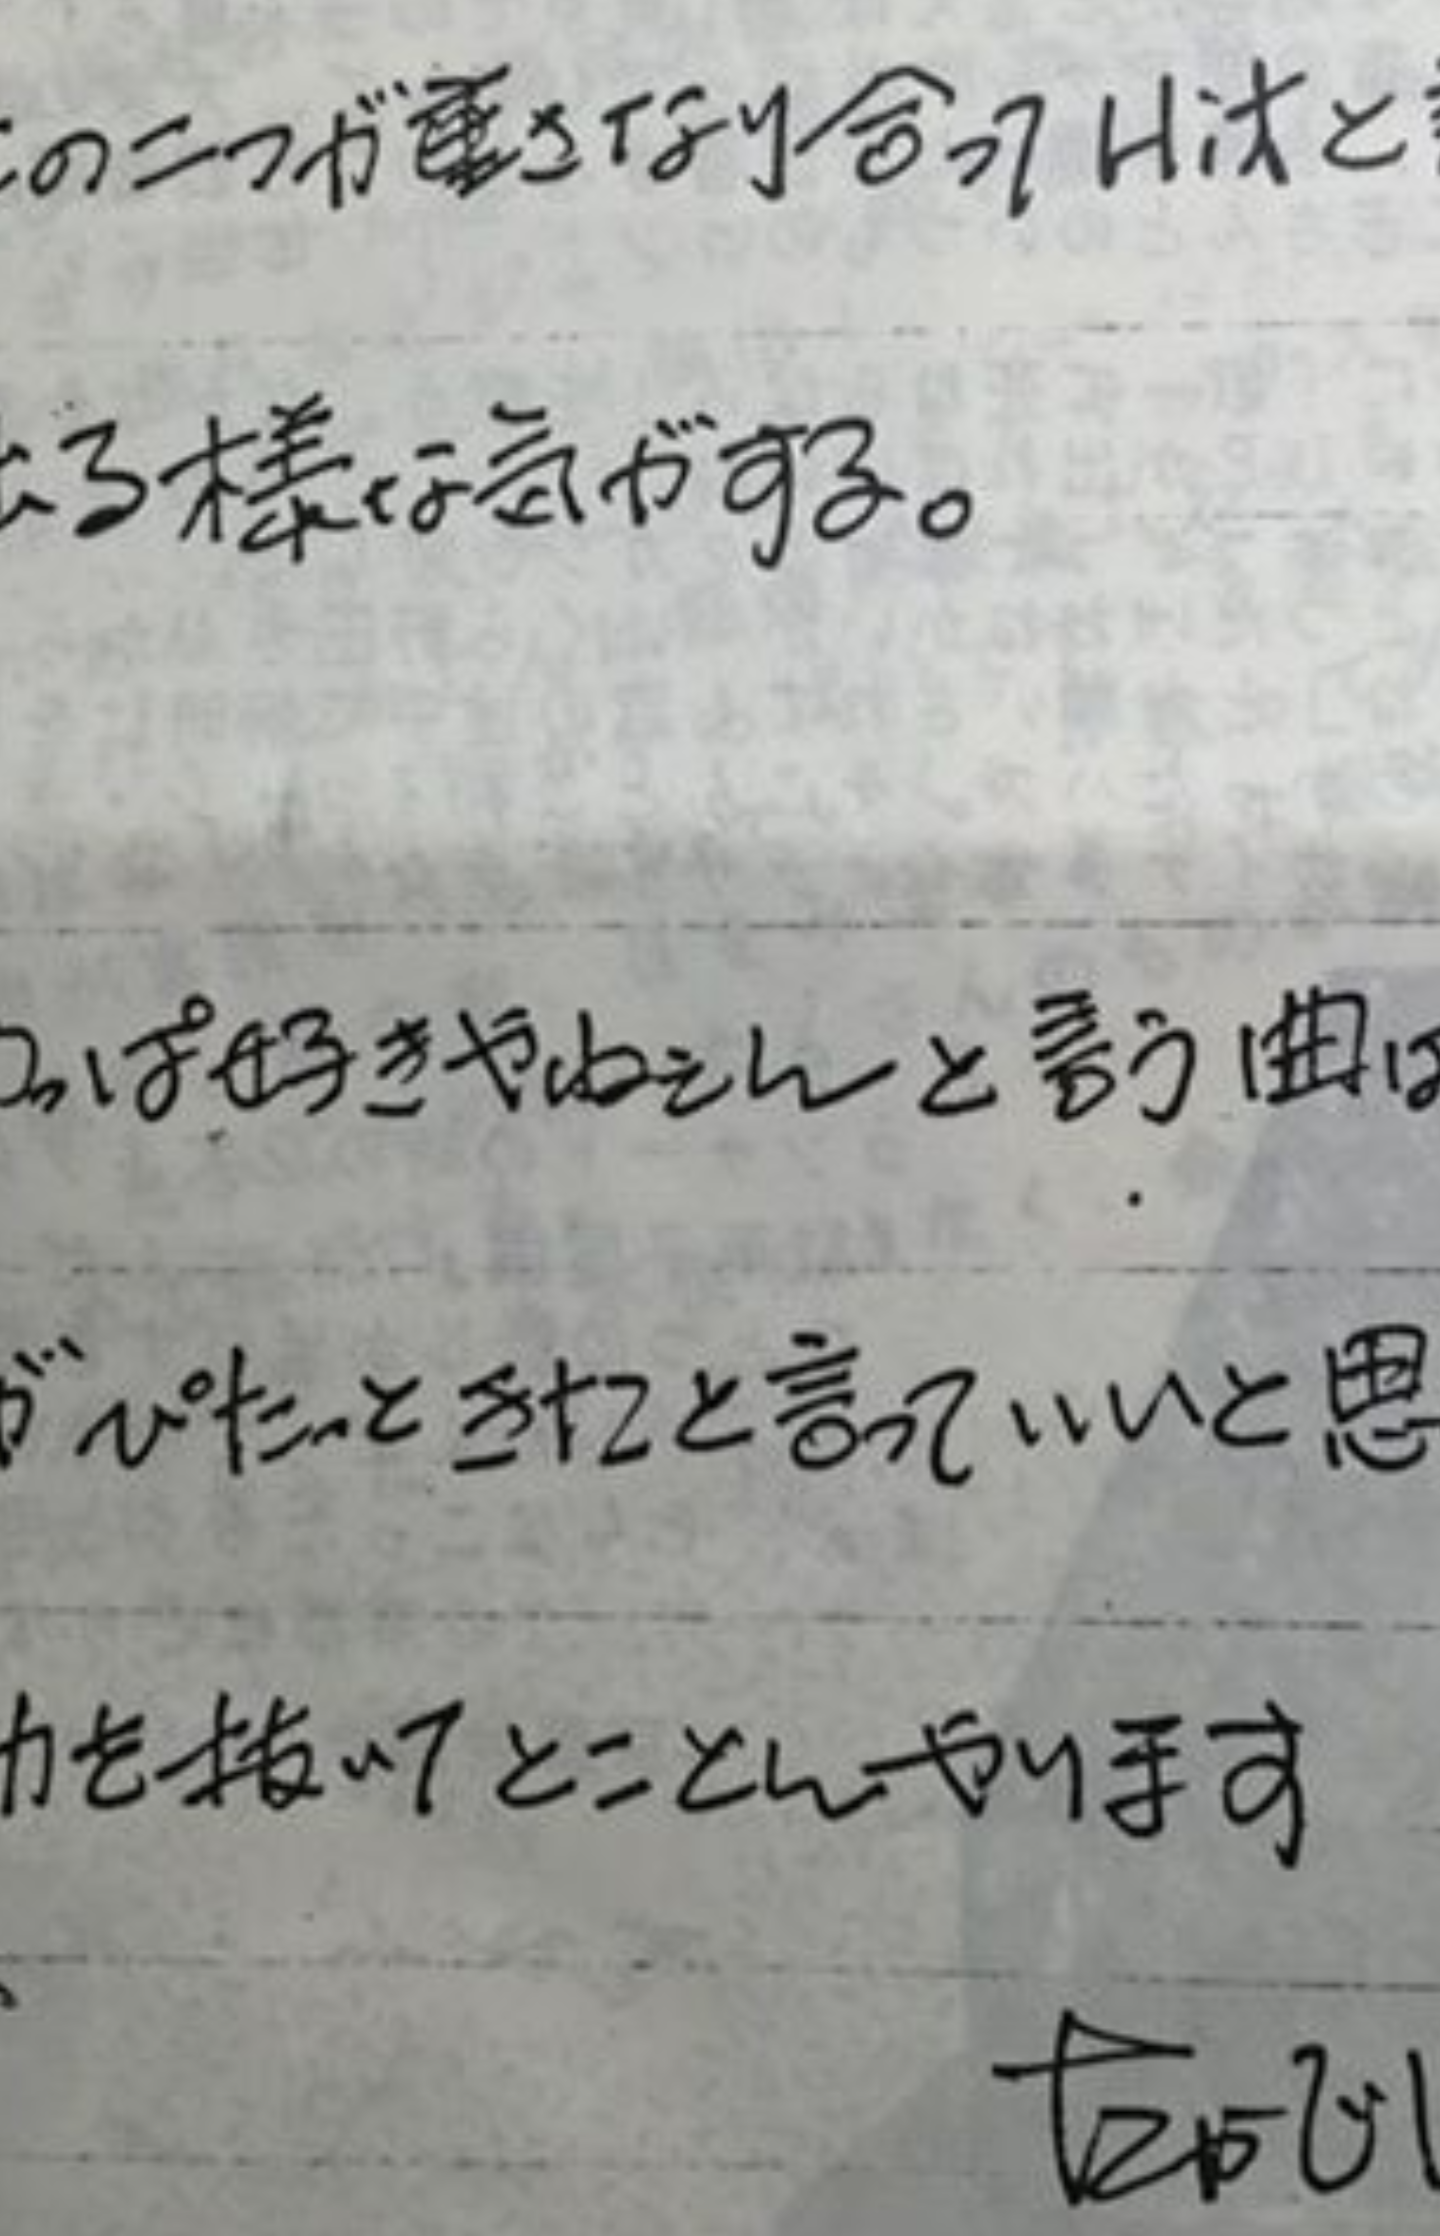 この二つが重さなり合ってHitと
出る様な気がする。
っぱ好きやねえんと言う曲は
がぴたっときたと言っていいと思
力を抜いてとことんやります